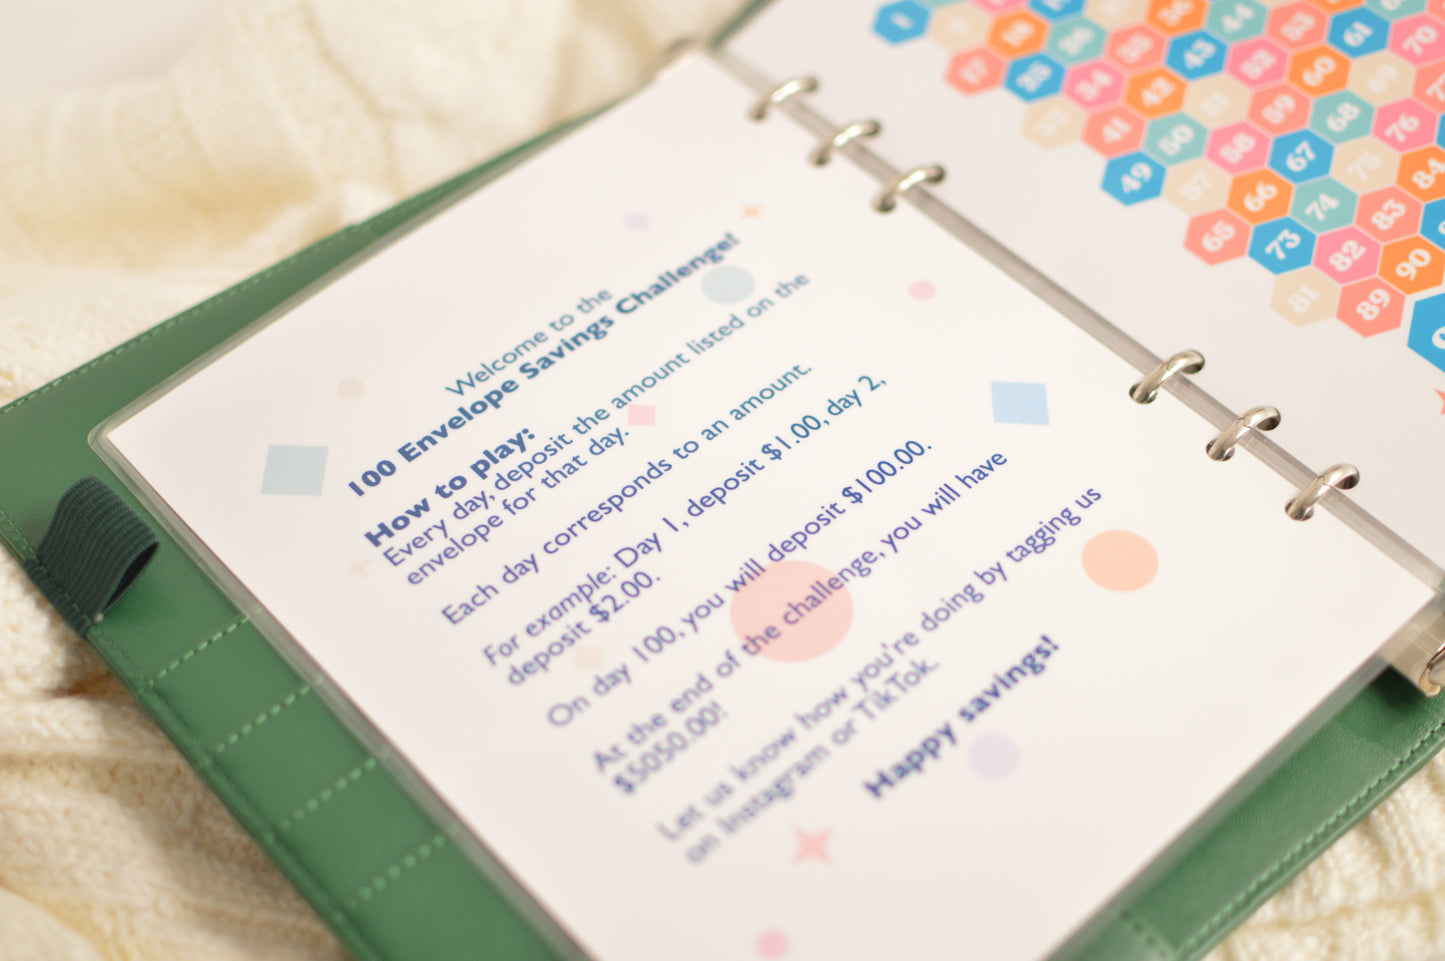 Welcome to the
100 Envelope Savings Challenge!
How to play:
Every day, deposit the amount listed on the
envelope for that day.
Each day corresponds to an amount.
For example: Day 1, deposit $1.00, day 2,
deposit $2.00.
On day 100, you will deposit $100.00.
At the end of the challenge, you will have
$5050.00!
Let us know how you're doing by tagging us
on Instagram or TikTok.
Happy savings!
36 44 53 61 70
26 35 45 52 60 69
17 25 34 43 51 59 68 76
33 41 50 58 67 75 84
49 57 66 74 83
65 73 82 90
81 89